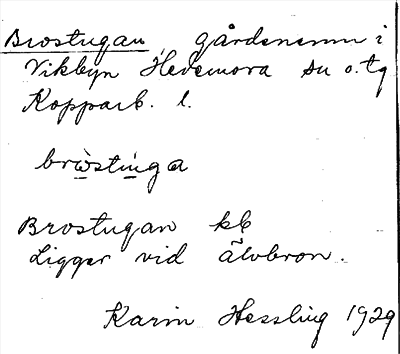 Brostugan gårdsnamn i
Vikbyn Hedemora sn o. tg
Kopparb. l.
brωstiṇga
Brostugan kb
Ligger vid Älvbron.
Karin Hessling 1929